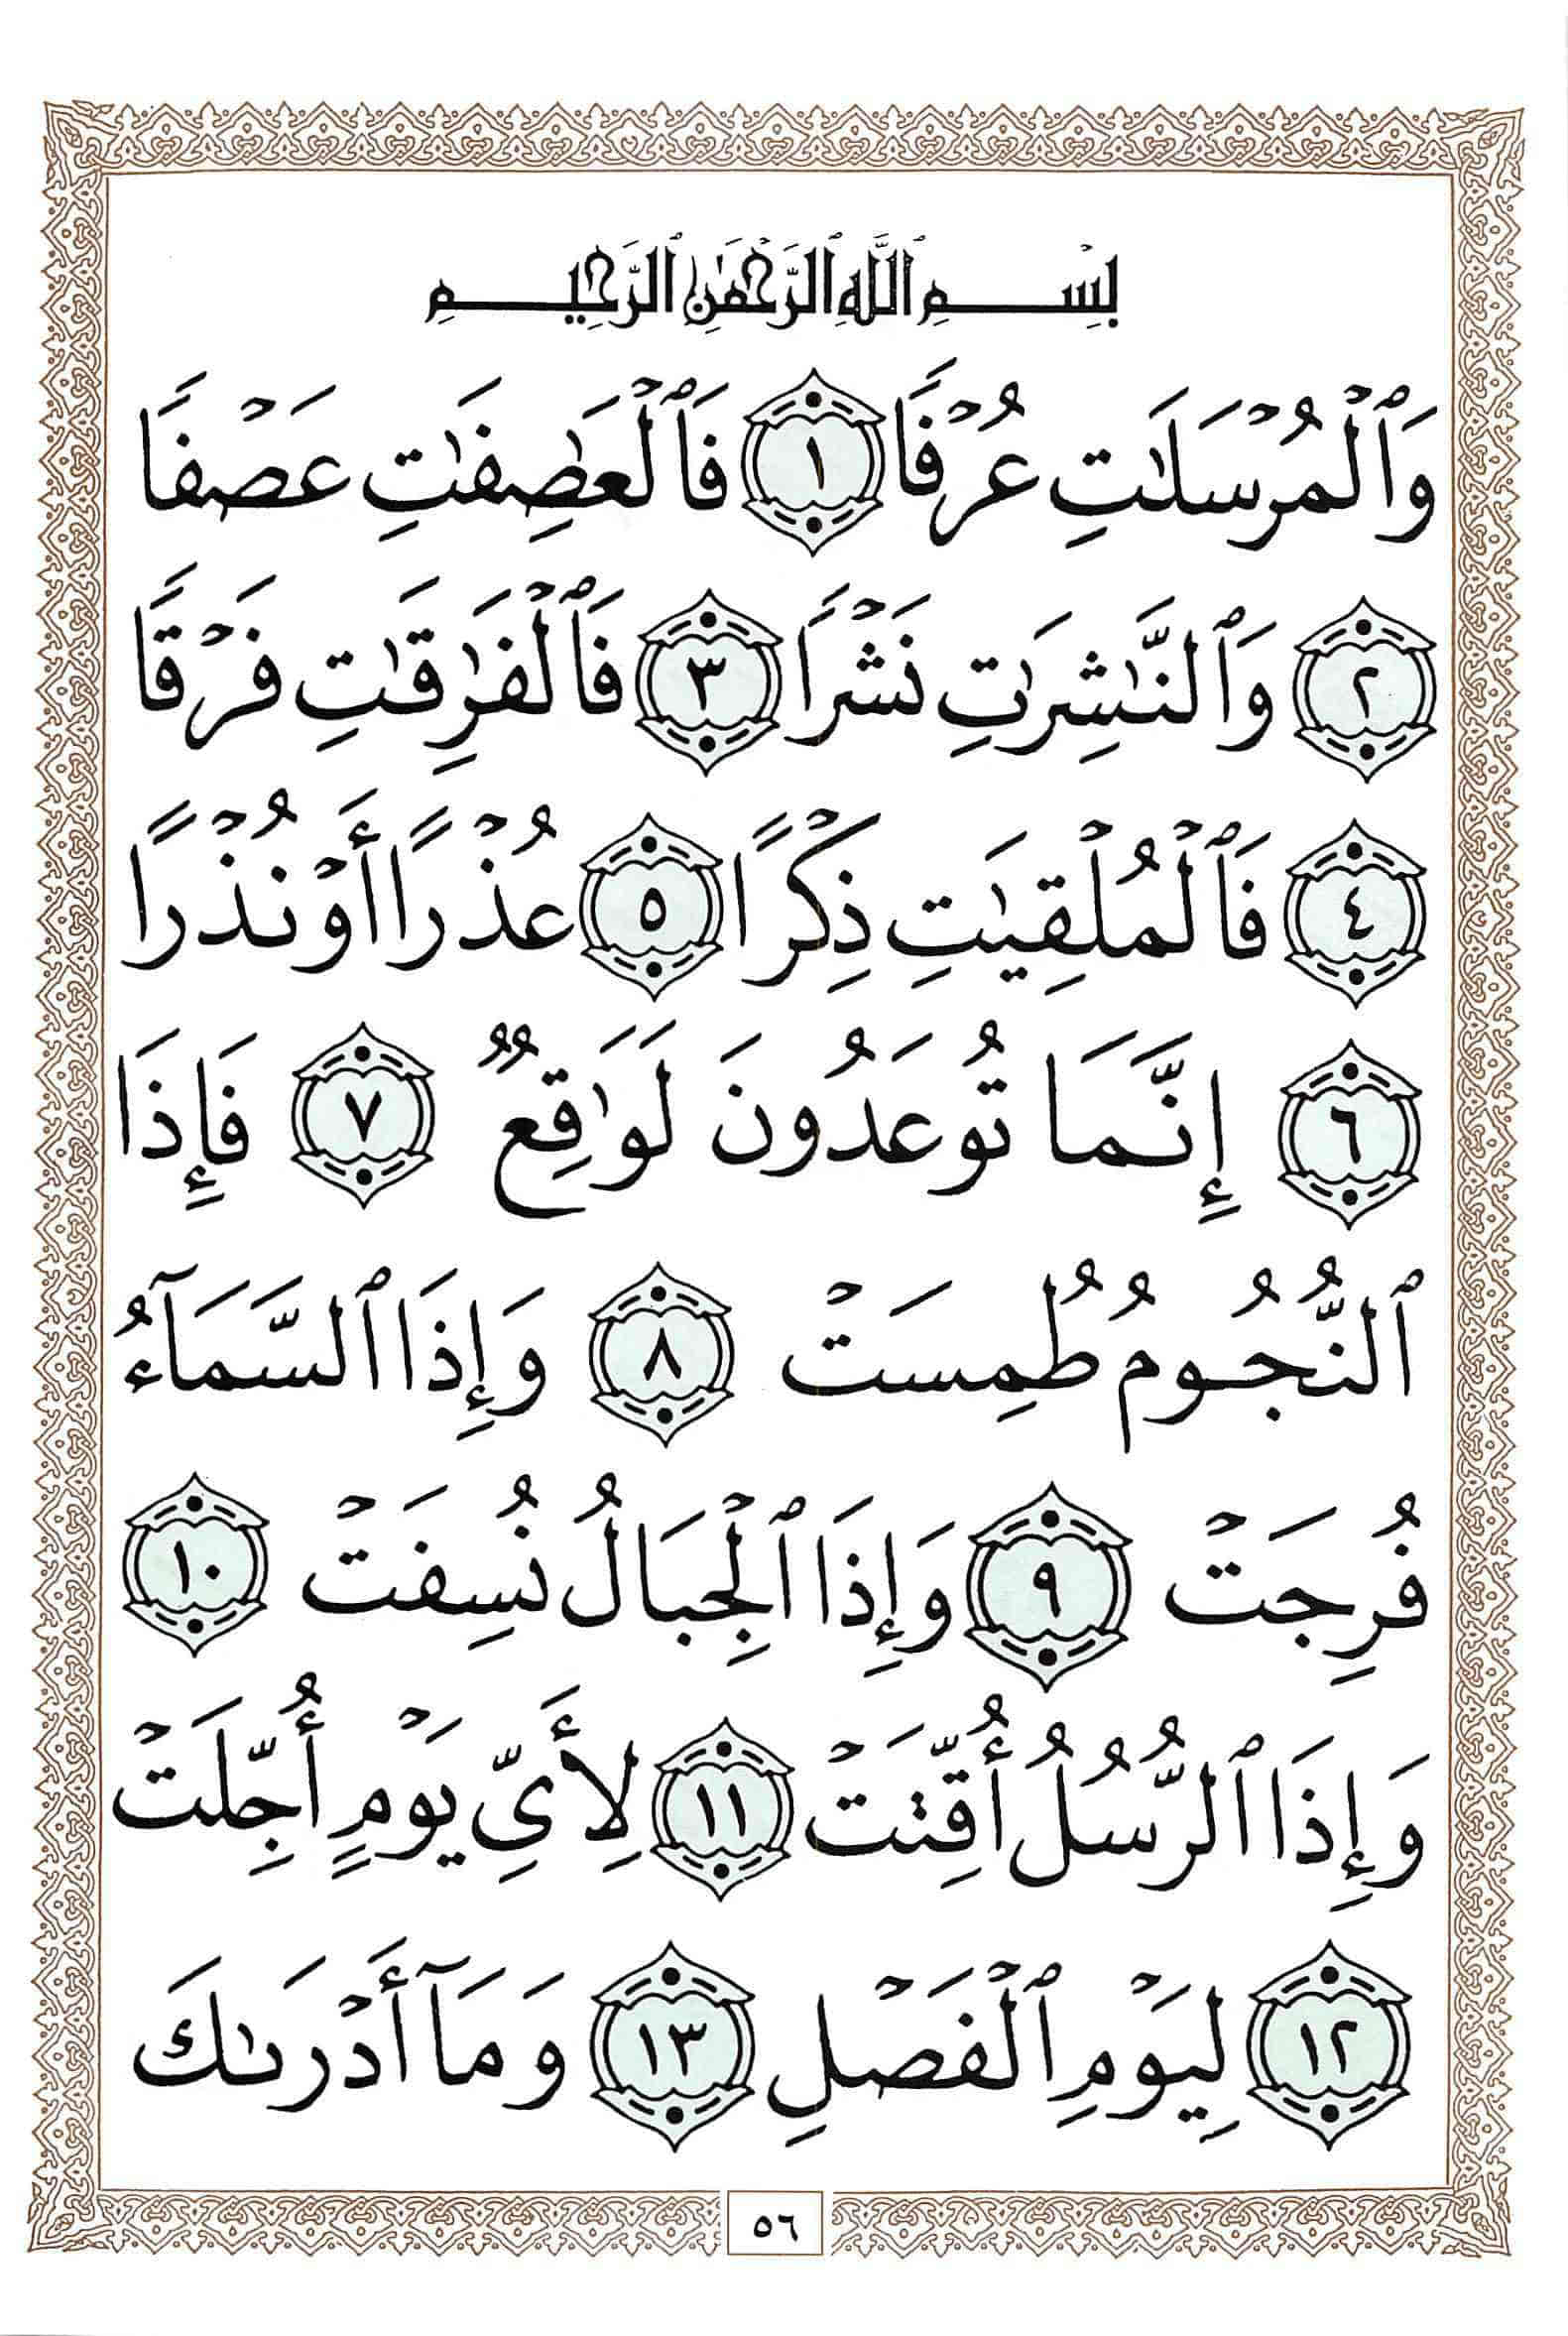 بِسْمِ ٱللَّهِ ٱلرَّحْمَٰنِ ٱلرَّحِيمِ
وَٱلْمُرْسَلَٰتِ عُرْفًا ١ فَٱلْعَٰصِفَٰتِ عَصْفًا
٢ وَٱلنَّٰشِرَٰتِ نَشْرًا ٣ فَٱلْفَٰرِقَٰتِ فَرْقًا
٤ فَٱلْمُلْقِيَٰتِ ذِكْرًا ٥ عُذْرًا أَوْ نُذْرًا
٦ إِنَّمَا تُوعَدُونَ لَوَٰقِعٌ ٧ فَإِذَا
ٱلنُّجُومُ طُمِسَتْ ٨ وَإِذَا ٱلسَّمَآءُ
فُرِجَتْ ٩ وَإِذَا ٱلْجِبَالُ نُسِفَتْ ١٠
وَإِذَا ٱلرُّسُلُ أُقِّتَتْ ١١ لِأَيِّ يَوْمٍ أُجِّلَتْ
١٢ لِيَوْمِ ٱلْفَصْلِ ١٣ وَمَآ أَدْرَىٰكَ
٥٦